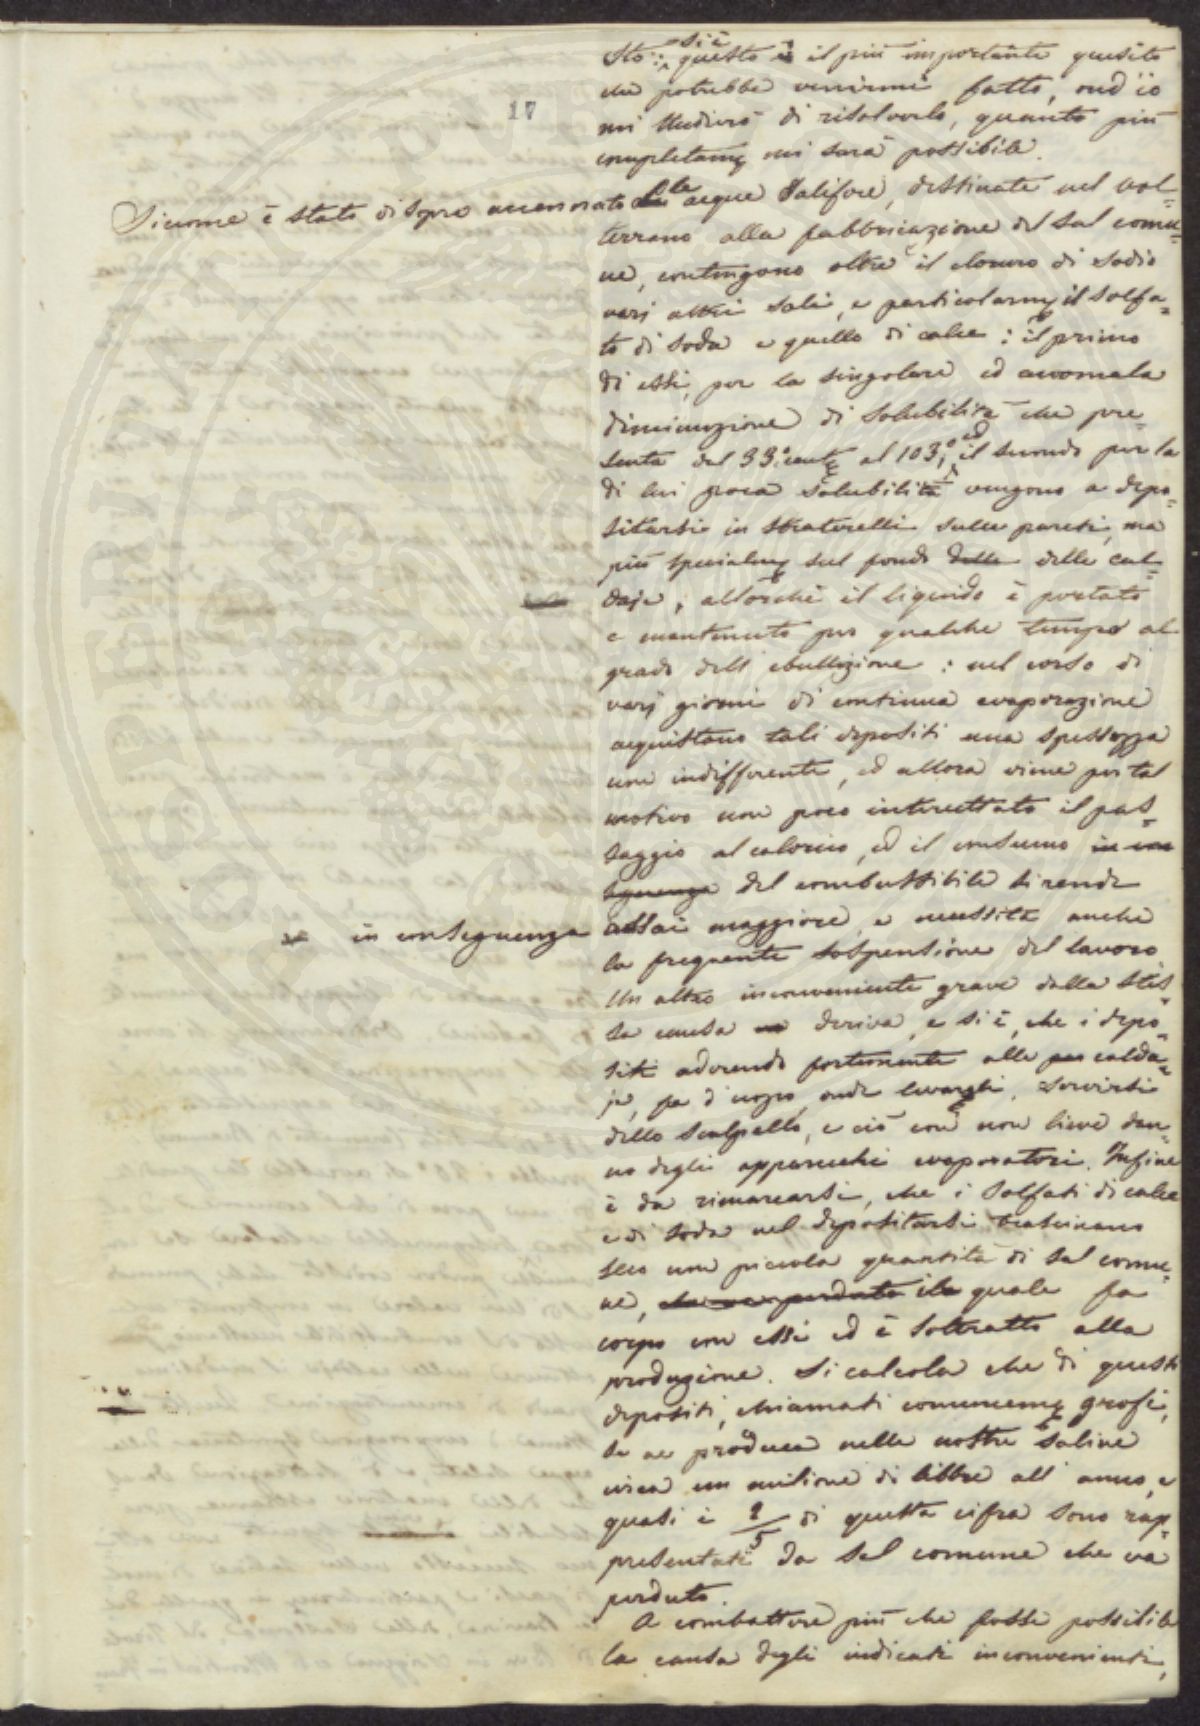 17
sto: si è questo è il più importante quesito
che potrebbe venirmi fatto, ond'io
mi studierò di risolverlo, quanto più
completamᵉ mi sarà possibile.
Siccome è stato di sopra accennato le acque Salifere, destinate nel vol=
terrano alla fabbricazione del sal comu=
ne, contengono oltre il cloruro di sodio
varj altri sali, e particolarmᵉ il solfa=
to di soda e quello di calce: il primo
di essi, per la singolare ed anomala
diminuzione di solubilità che pre=
senta dal 33.° centᵉ al 103,° ed il secondo per la
di lui poca solubilità vengono a depo=
sitarsi in straterelli sulle pareti, ma
più specialmᵉ sul fondo delle delle cal=
daje, allorchè il liquido è portato
e mantenuto per qualche tempo al
grado dell'ebullizione: nel corso di
varj giorni di continua evaporazione
acquistano tali depositi una spessezza
non indifferente, ed allora viene per tal
motivo non poco intercettato il pas=
saggio al calorico, ed il consumo in con
seguenza del combustibile si rende
in conseguenza assai maggiore, e necessita anche
la frequente sospensione del lavoro.
Un altro inconveniente grave dalla stes=
sa causa deriva, e si è, che i depo=
siti aderendo fortemente alle calda=
je, fa d'uopo, onde levargli, servirsi
dello scalpello, e ciò con non lieve dan=
no degli apparecchi evaporatori. Infine
è da rimarcarsi, che i solfati di calce
e di soda nel depositarsi trascinano
seco una piccola quantità di sal comu=
ne, il quale fa
corpo con essi ed è sottratto alla
produzione. Si calcola che di questi
depositi, chiamati comunemᵉ grofi,
se ne produca nelle nostre saline
circa un milione di libbre all'anno, e
quasi i 2/5 di questa cifra sono rap=
presentati da sal comune che va
perduto.
A combattere più che fosse possibile
la causa degli indicati inconvenienti,